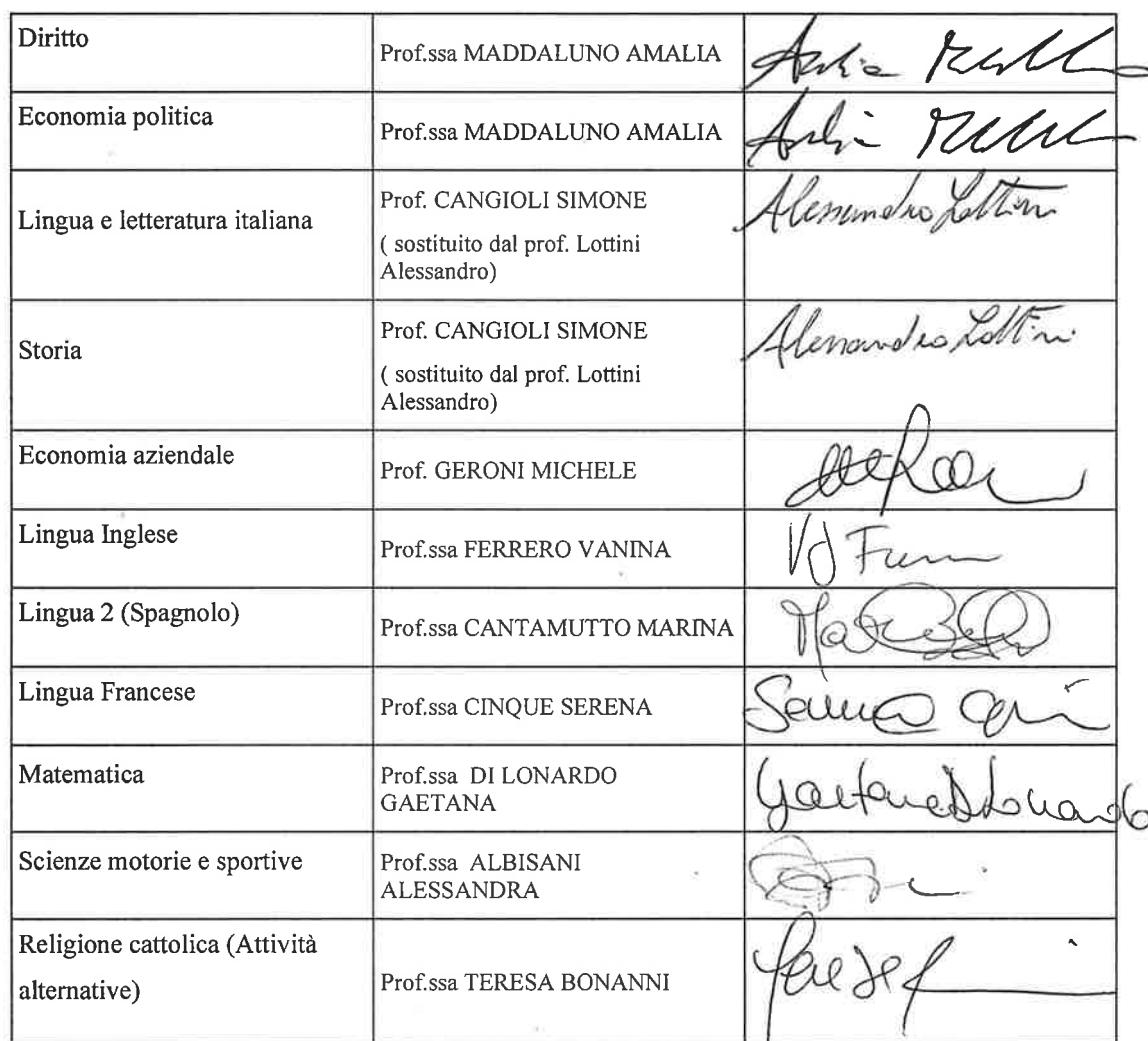 Diritto
Prof.ssa MADDALUNO AMALIA
Economia politica
Prof.ssa MADDALUNO AMALIA
Lingua e letteratura italiana
Prof. CANGIOLI SIMONE
( sostituito dal prof. Lottini
Alessandro)
Alessandro Lottini
Storia
Prof. CANGIOLI SIMONE
( sostituito dal prof. Lottini
Alessandro)
Alessandro Lottini
Economia aziendale
Prof. GERONI MICHELE
Lingua Inglese
Prof.ssa FERRERO VANINA
Lingua 2 (Spagnolo)
Prof.ssa CANTAMUTTO MARINA
Lingua Francese
Prof.ssa CINQUE SERENA
Matematica
Prof.ssa DI LONARDO
GAETANA
Gaetana Di Lonardo
Scienze motorie e sportive
Prof.ssa ALBISANI
ALESSANDRA
Religione cattolica (Attività
alternative)
Prof.ssa TERESA BONANNI